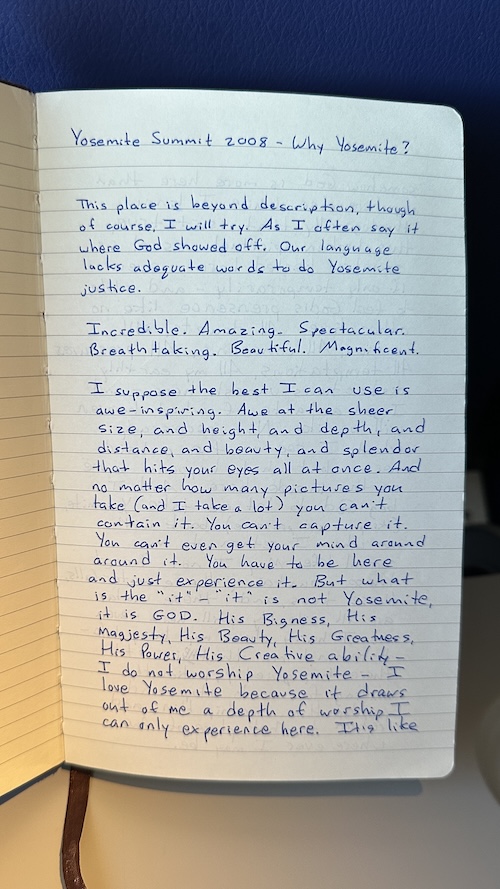 Yosemite Summit 2008 - Why Yosemite?
This place is beyond description, though
of course, I will try. As I often say it
where God showed off. Our language
lacks adequate words to do Yosemite
justice.
Incredible. Amazing. Spectacular.
Breathtaking. Beautiful. Magnificent.
I suppose the best I can use is
awe-inspiring. Awe at the sheer
size, and height, and depth, and
distance, and beauty, and splendor
that hits your eyes all at once. And
no matter how many pictures you
take (and I take a lot) you can't
contain it. You can't capture it.
You can't even get your mind around
around it. You have to be here
and just experience it. But what
is the "it" - "it" is not Yosemite,
it is GOD. His Bigness, His
Magjesty, His Beauty, His Greatness,
His Power, His Creative ability -
I do not worship Yosemite - I
love Yosemite because it draws
out of me a depth of worship I
can only experience here. It is like